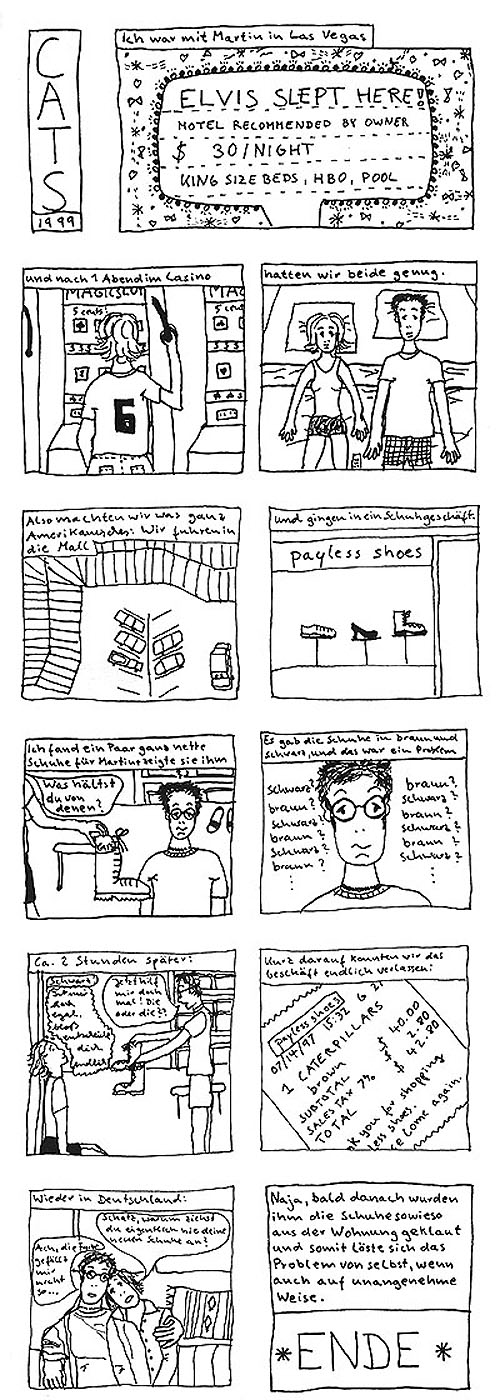 CATS
1999
Ich war mit Martin in Las Vegas
ELVIS SLEPT HERE!
MOTEL RECOMMENDED BY OWNER
$ 30/NIGHT
KING SIZE BEDS, HBO, POOL
und nach 1 Abend im Casino
MAGICSLOT
MAG
5 cents
5 c
$$$
$$
hatten wir beide genug.
6
Also machten wir was ganz
Amerikanisches: Wir fuhren in
die Mall
und gingen in ein Schuhgeschäft.
payless shoes
Ich fand ein Paar ganz nette
Schuhe für Martin, zeigte sie ihm
Was hältst
du von
denen?
Es gab die Schuhe in braun und
schwarz, und das war ein Problem
Schwarz?
braun?
Schwarz?
braun?
Schwarz?
braun?
...
braun?
Schwarz?
braun?
Schwarz?
braun?
Schwarz?
...
Ca. 2 Stunden später:
Schwarz!
Ist mir
doch
egal,
bloß
entscheide
dich
endlich!
Jetzt hilf
mir doch
mal! Die
oder die??
Kurz darauf konnten wir das
Geschäft endlich verlassen:
payless shoes
07/14/97 15:32 6 21
1 CATERPILLARS
brown $ 40.00
SUBTOTAL
SALES TAX 7% $ 2.80
TOTAL $ 42.80
nk you for shopping
less shoes.
se come again.
Wieder in Deutschland:
Schatz, warum ziehst
du eigentlich nie deine
neuen Schuhe an?
Ach, die Farbe
gefällt
mir
nicht
so...
Naja, bald danach wurden
ihm die Schuhe sowieso
aus der Wohnung geklaut
und somit löste sich das
Problem von selbst, wenn
auch auf unangenehme
Weise.
*ENDE*